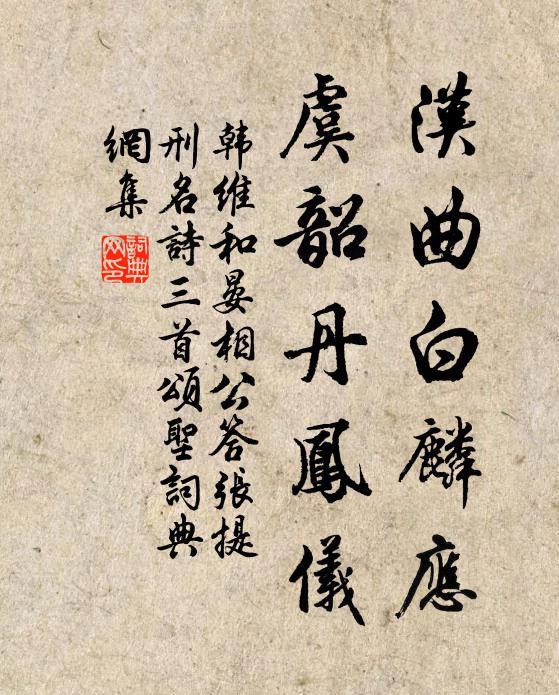 漢曲白麟應
虞韶丹鳳儀
韓維和晏相公答張提
刑名詩三首頌聖詞典
網集
詞典
网印